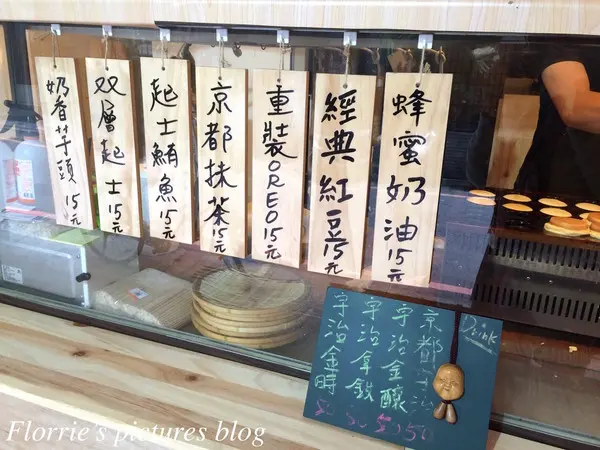 蜂蜜奶油15元
經典紅豆15元
重裝OREO15元
京都抹茶15元
起士鮪魚15元
双層起士15元
奶香芋頭15元
Drink
京都宇治50
宇治金釀
宇治拿鐵50
宇治金時50
Florrie's pictures blog